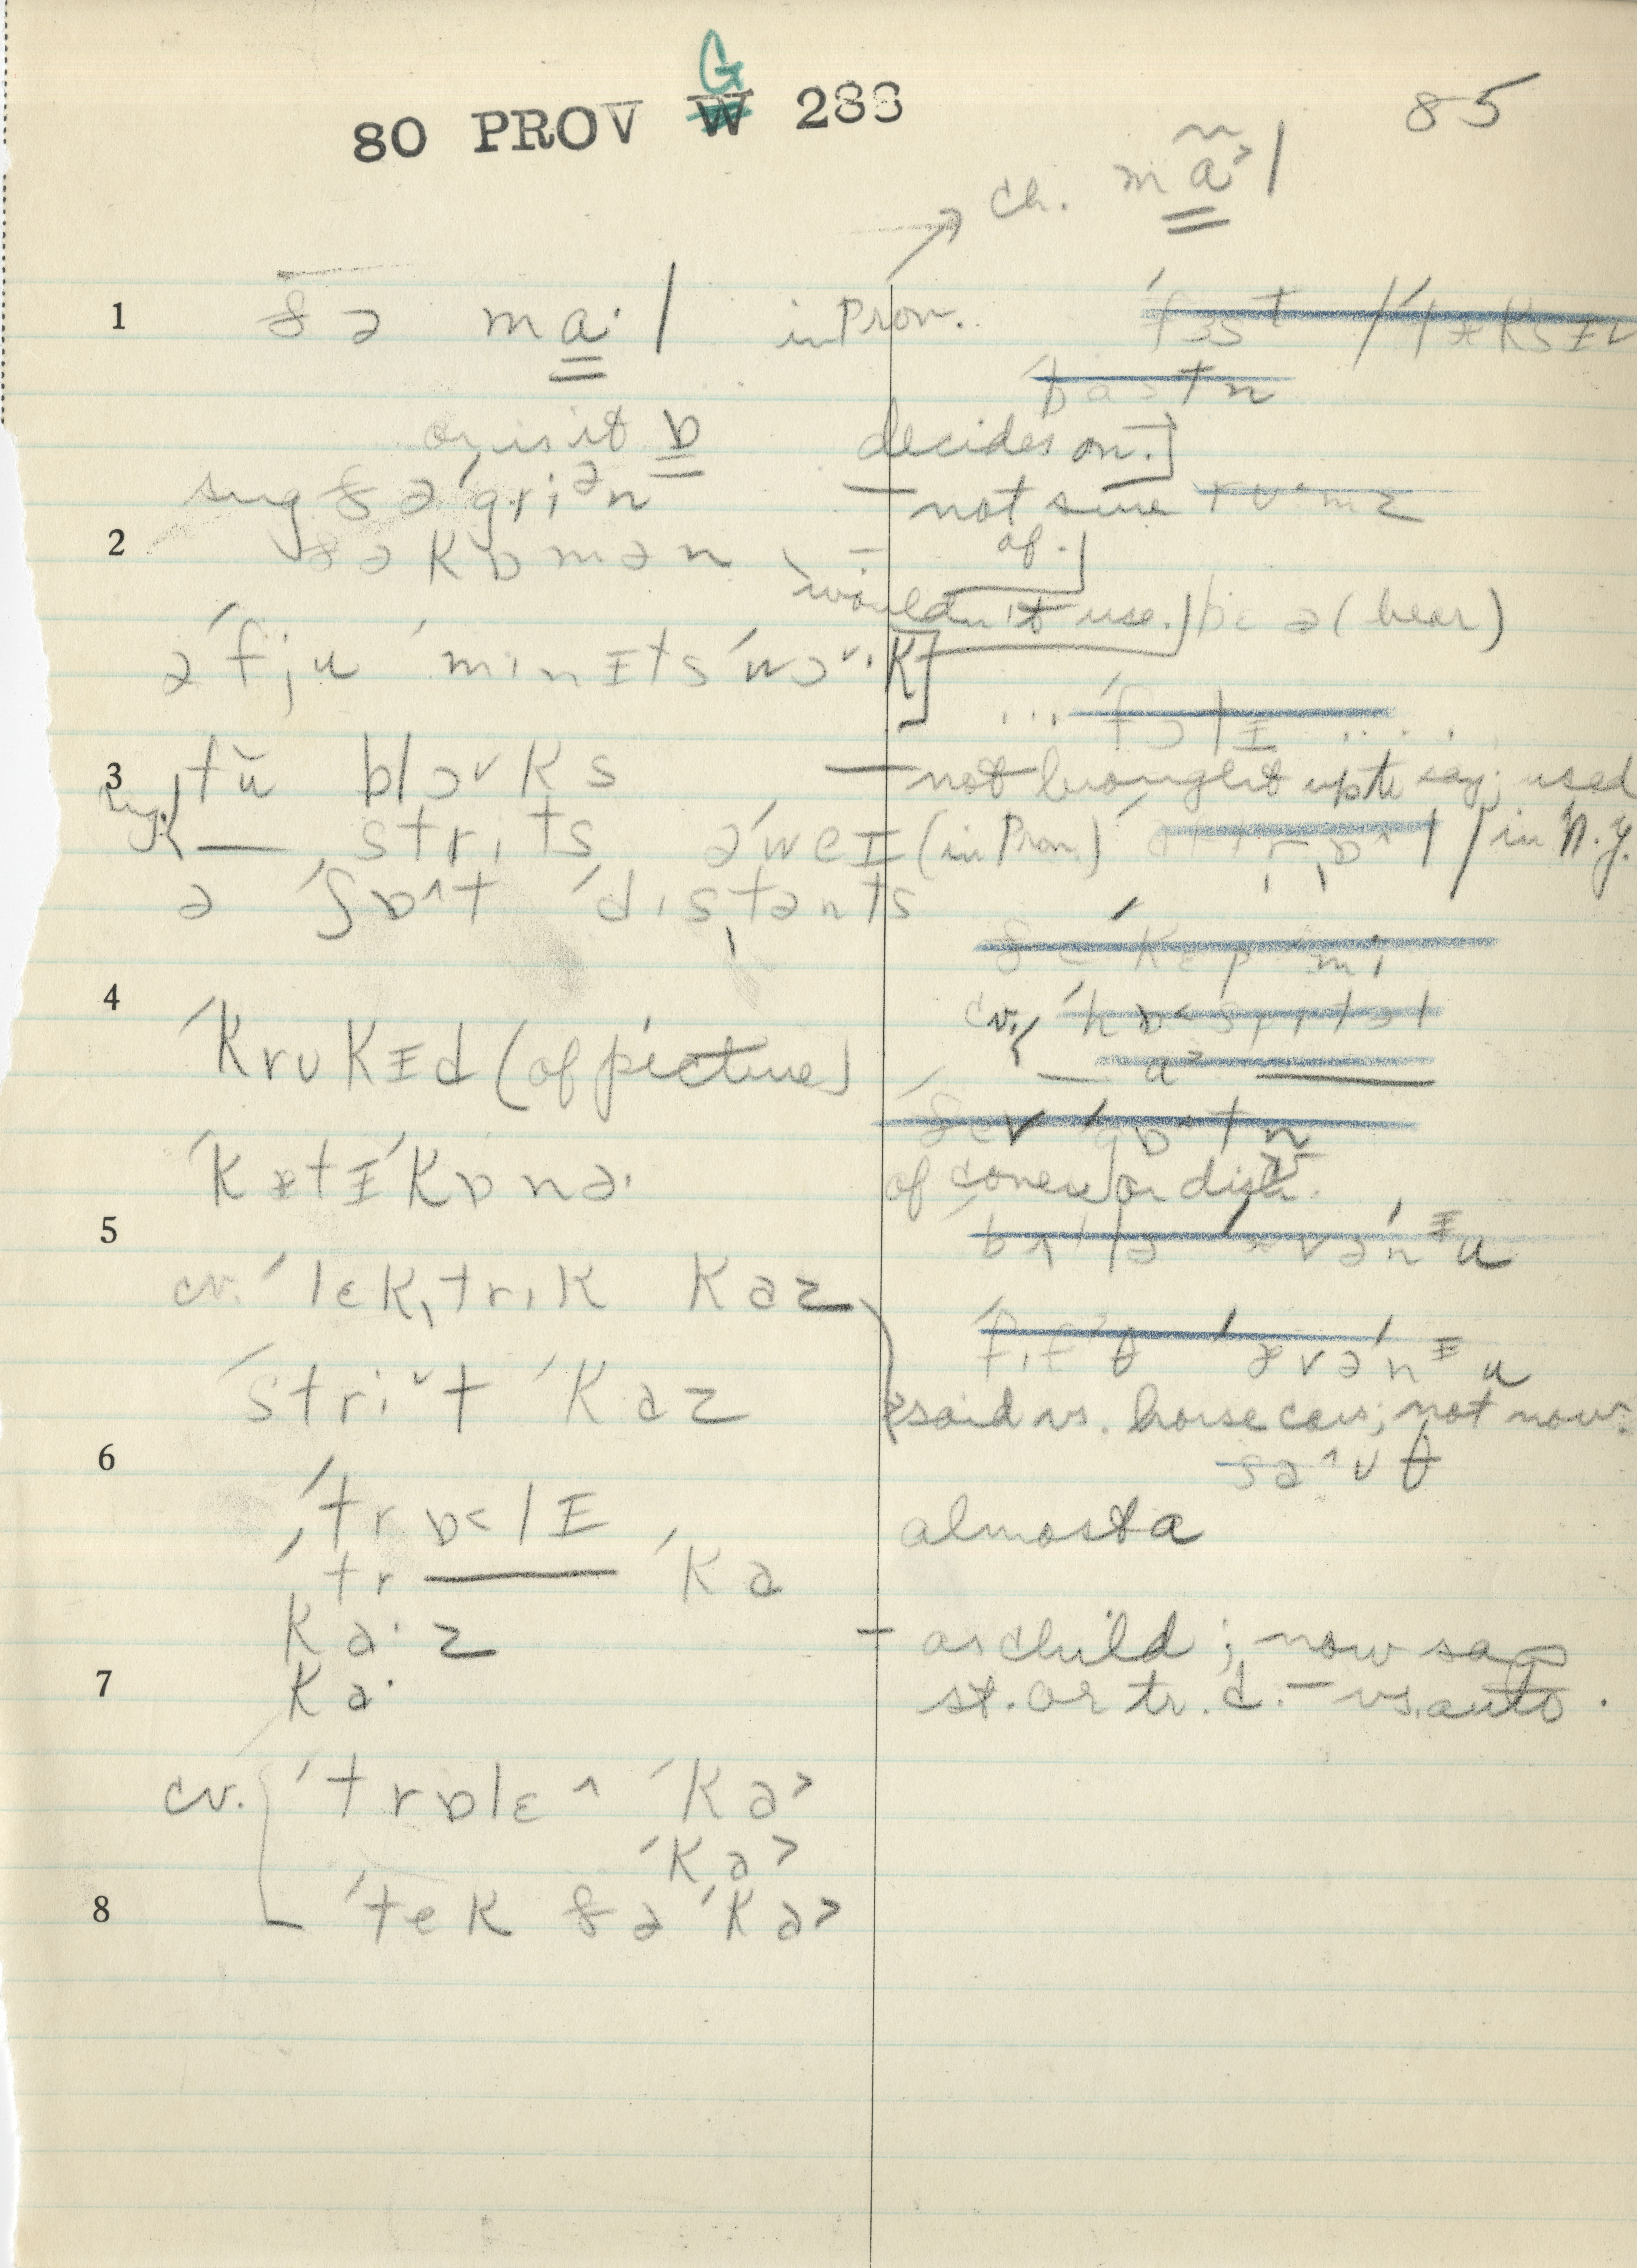 80 PROV G W 288
85
ch. ma˃l
1 ðə ma·l in Prov. ˈfɜst
or is it ɒ decides on.]
sug ðə ˈgriᵊn — not sure
2 ðə kɒmən — of.]
wouldn't use.] bɛə (bear)
ə ˈfju ˈminɪts ˈwɔ˅·k]
3 tŭ blɔ˅ks — not brought up to say; used
sug. — strits əˈweɪ (in Prov.) / in N.Y.
ə ˈʃɒ^t ˈdistənts
ðe ˈkɛp mi
4 cv.
ˈkrukɪd (of picture)
ˈkætɪˈkɒnə· of corner or distr.
5
cv. ˈlɛkˌtrik kaz
ˈstri˅t ˈkaz said vs. horse cars; not now.
6 sa^ʊθ
ˈtrɒ˂lɪ almost a
ˈtr — ˈka
ka·z — as child; now says
7 ka· st. or tr. c. — vs. auto.
cv. ˈtrɒlɛ^ ˈka˃
ˈka˃
8 ˈtek ðə ˈka˃